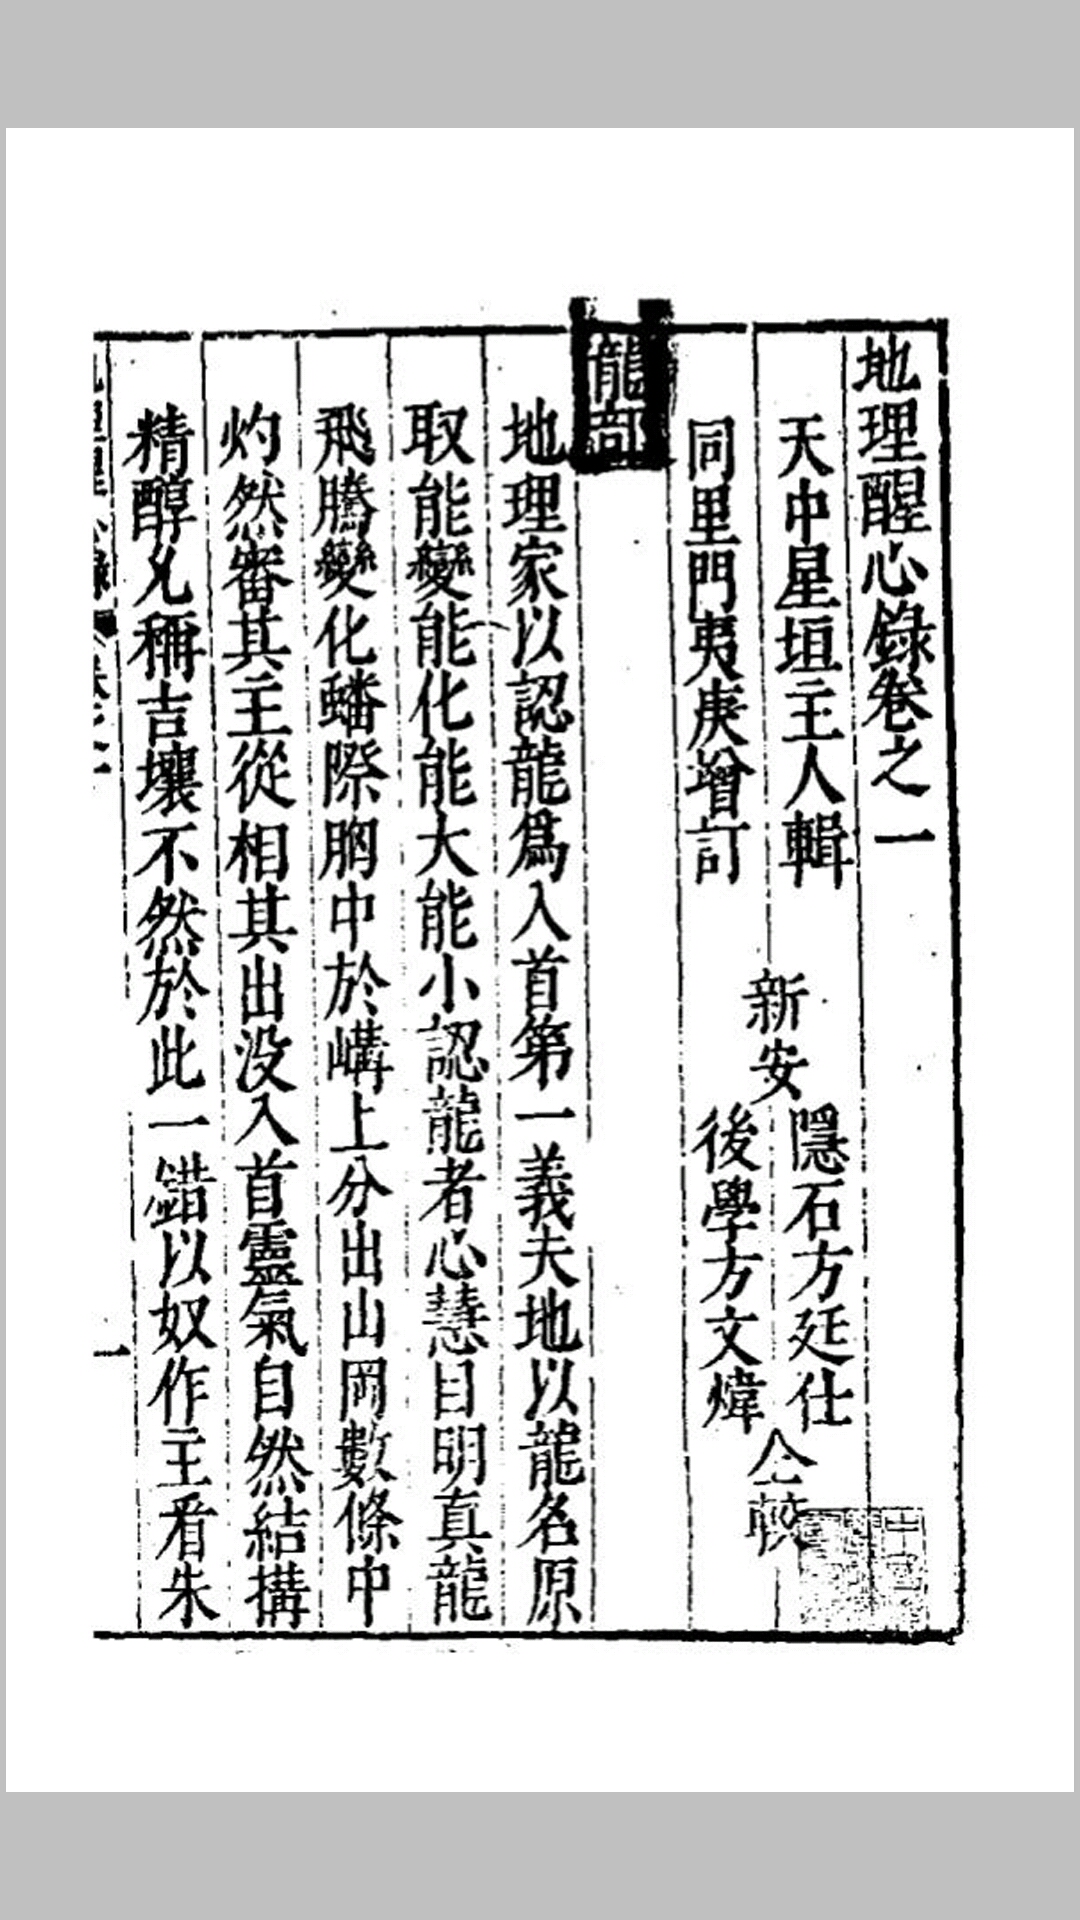 地理醒心錄卷之一
天中星垣主人輯
同里門夷庚增訂
新安
隱石方延仕
後學方文煒
仝較
龍部
地理家以認龍爲入首第一義夫地以龍名原
取能變能化能大能小認龍者心慧目明真龍
飛騰變化蟠際胸中於嶙上分出山岡數條中
灼然審其主從相其出没入首靈氣自然結搆
精醇兊稱吉壤不然於此一錯以奴作主看朱
一